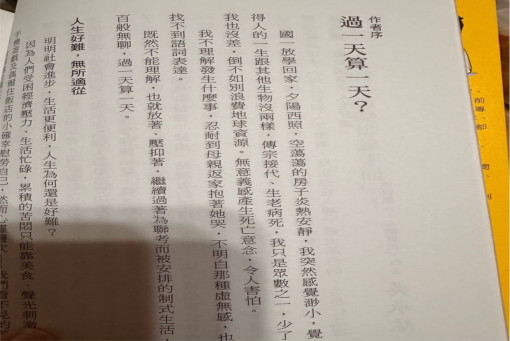 作者序
過一天算一天?
國一放學回家,夕陽西照,空蕩蕩的房子炎熱安靜,我突然感覺渺小,覺
得人的一生跟其他生物沒兩樣,傳宗接代、生老病死,我只是眾數之一,少了
我也沒差,倒不如別浪費地球資源。無意義感產生死亡意念,令人害怕。
我不理解發生什麼事,忍耐到母親返家抱著她哭,不明白那種虛無感,也
找不到語詞表達。
既然不能理解,也就放著、壓抑著,繼續過著為聯考而被安排的制式生活,
百般無聊,過一天算一天。
人生好難,無所適從
明明社會進步,生活更便利,人生為何還是好難?
因為人們受困經濟壓力、生活忙碌,累積的苦悶只能靠美食、聲光刺激
小確幸慰勞自己,